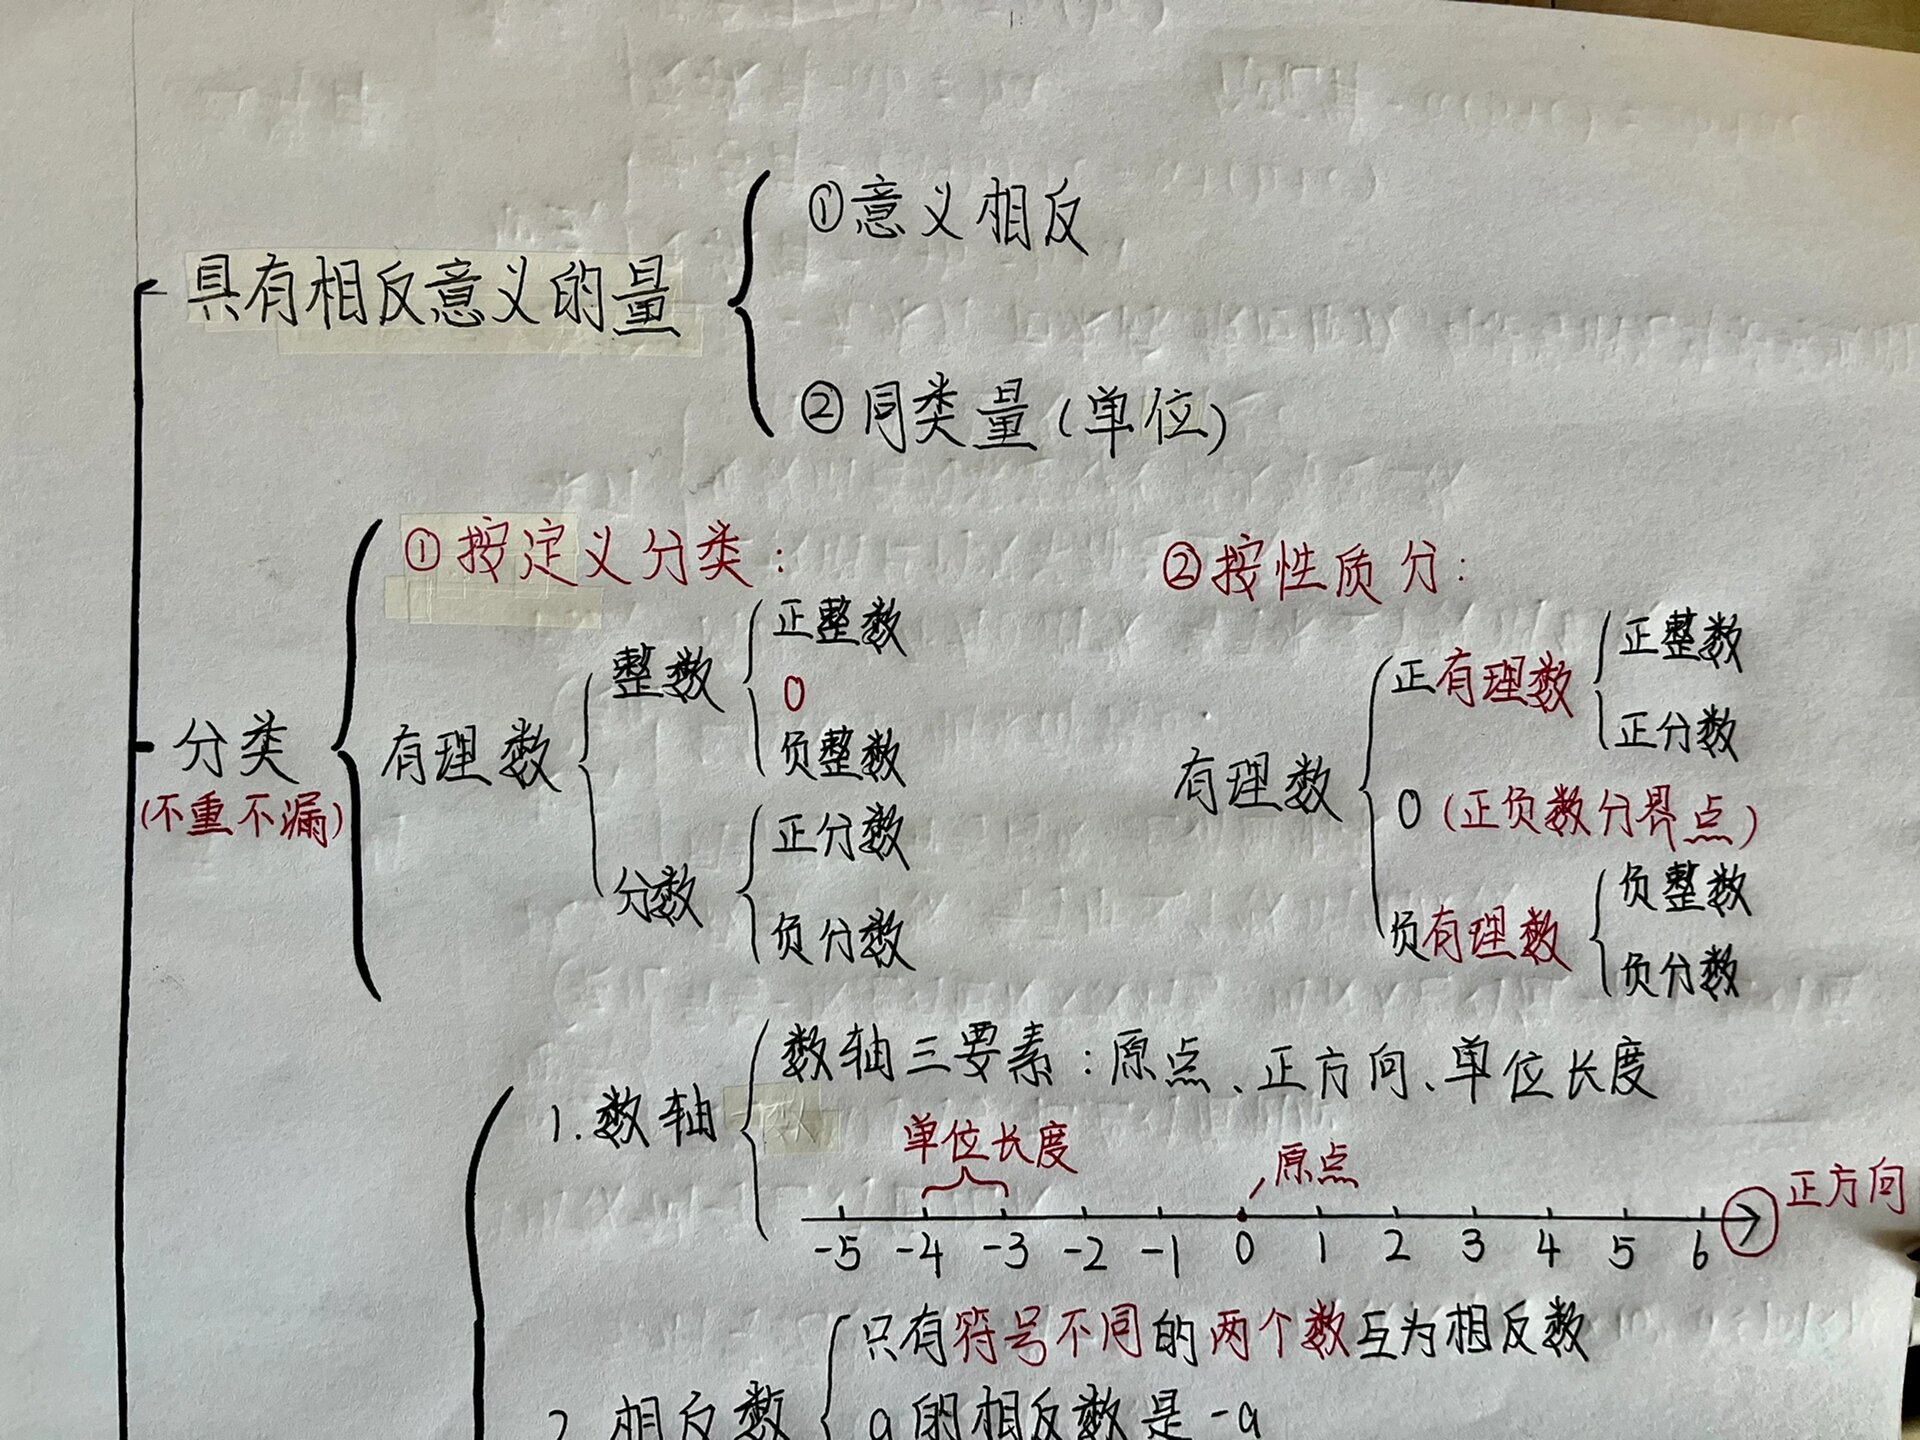 具有相反意义的量
①意义相反
②同类量(单位)
分类
(不重不漏)
①按定义分类:
有理数
整数
正整数
0
负整数
分数
正分数
负分数
②按性质分:
有理数
正有理数
正整数
正分数
0(正负数分界点)
负有理数
负整数
负分数
1.数轴
数轴三要素:原点、正方向、单位长度
单位长度
原点
正方向
-5 -4 -3 -2 -1 0 1 2 3 4 5 6
2.相反数
只有符号不同的两个数互为相反数
a的相反数是-a